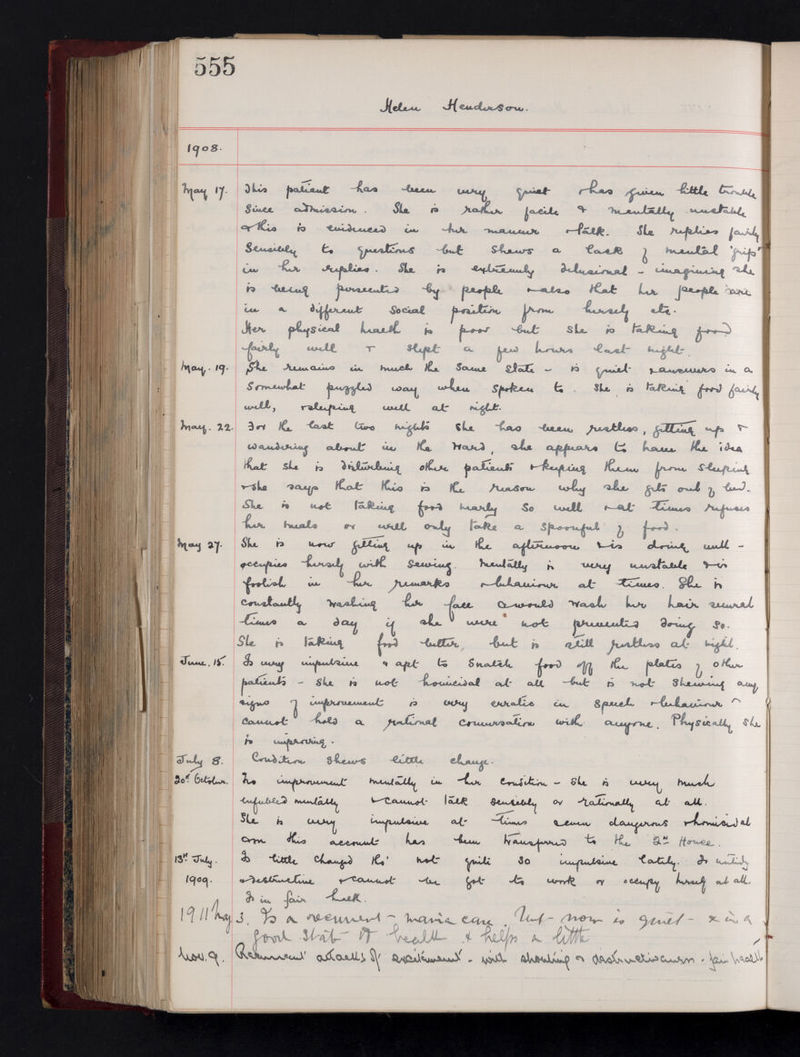 555
Helen Henderson.
1908.
May 17. This patient has been very quiet & has given little trouble
since admission. She is rather facile & mentally unstable
& this is evidenced in her manner & talk. She replies fairly
sensibly to questions but shews a lack of mental "grip"
in her replies. She is extremely delusional - imagining she
is being persecuted by people & also that her people are
in a different social position from herself etc.
Her physical health is poor but she is taking food
fairly well & slept a few hours last night.
May. 19. She remains in much the same state - is quiet & answers in a
somewhat puzzled way when spoken to. She is taking food fairly
well, & sleeping well at night.
May. 22. For the last two nights she has been restless, getting up &
wandering about in the ward, she appears to have the idea
that she is disturbing other patients & keeping them from sleeping
& she says that this is the reason why she gets out of bed.
She is not taking food nearly so well & at times refuses
her meals or will only take a spoonful of food.
May 27. She is now getting up in the afternoon & is doing well -
occupies herself with sewing. Mentally is very unstable & is
foolish in her remarks & behaviour at times. She is
constantly washing her face & would wash her hair several
times a day if she were not prevented doing so.
She is taking food better, but is still restless at night.
June. 15. Is very impulsive & apt to snatch food off the plates of other
patients - She is not homicidal at all but is not shewing any
signs of improvement is very erratic in speech & behaviour &
cannot hold a rational conversation with anyone. Physically she
is improving.
July 8. Condition shews little change.
20th October. No improvement mentally in her condition - She is very much
enfeebled mentally & cannot talk sensibly or rationally at all.
She is very impulsive at times & even dangerous & homicidal
& on this account has been transferred to the 2nd House.
13th July. Is little changed tho' not quite so impulsive lately. Is untidy
1909. & destructive & cannot be got to work or occupy herself at all.
Is in fair health.
1911 May 3. Is a recurrent mania case, but now is quiet & in a
good state of health & helps a little
Nov. 9. Recurrent attacks of excitement - with shouting & destructiveness - fair health